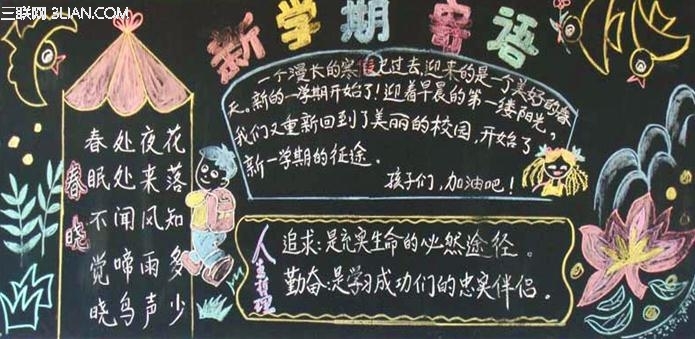 三联网 3LIAN.COM
新学期寄语
春晓
春眠不觉晓
处处闻啼鸟
夜来风雨声
花落知多少
一个漫长的寒假已过去,迎来的是一个美好的春
天。新的一学期开始了!迎着早晨的第一缕阳光,
我们又重新回到了美丽的校园,开始了
新一学期的征途.
孩子们,加油吧!
人生哲理
追求:是充实生命的必然途径。
勤奋:是学习成功们的忠实伴侣。